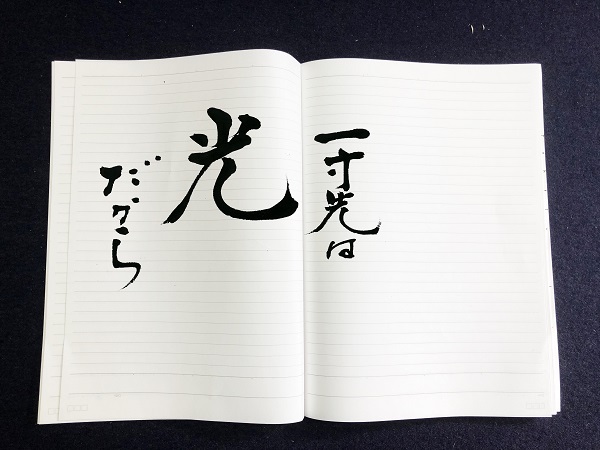 一寸先は
光
だから